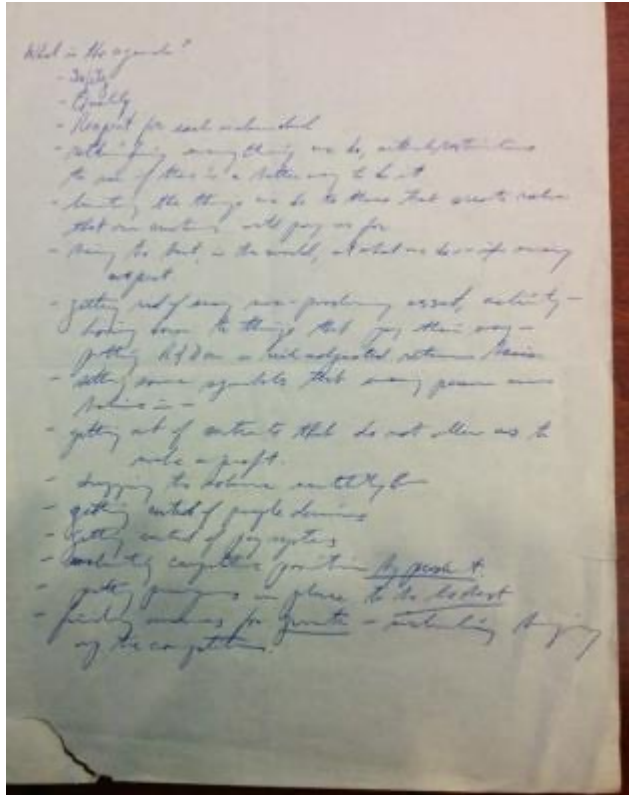 What is the agenda?
- Safety
- Quality
- Respect for each individual
- rethinking everything we do,
to see if there is a better way to do it
- limiting the things we do to those that create value
that our customers will pay us for
- being the best, in the world, at what we do in every
aspect
- getting rid of every non-producing asset, activity -
down to things that pay their way -
putting R&D on a risk adjusted return basis
- setting some that every person
believes in -
- getting out of contracts that do not allow us to
make a profit.
- to
- getting control of people
- getting control of pay systems
- competitive position by product
- putting programs in place to be lowest
- finding for growth - including buying
up the competition.